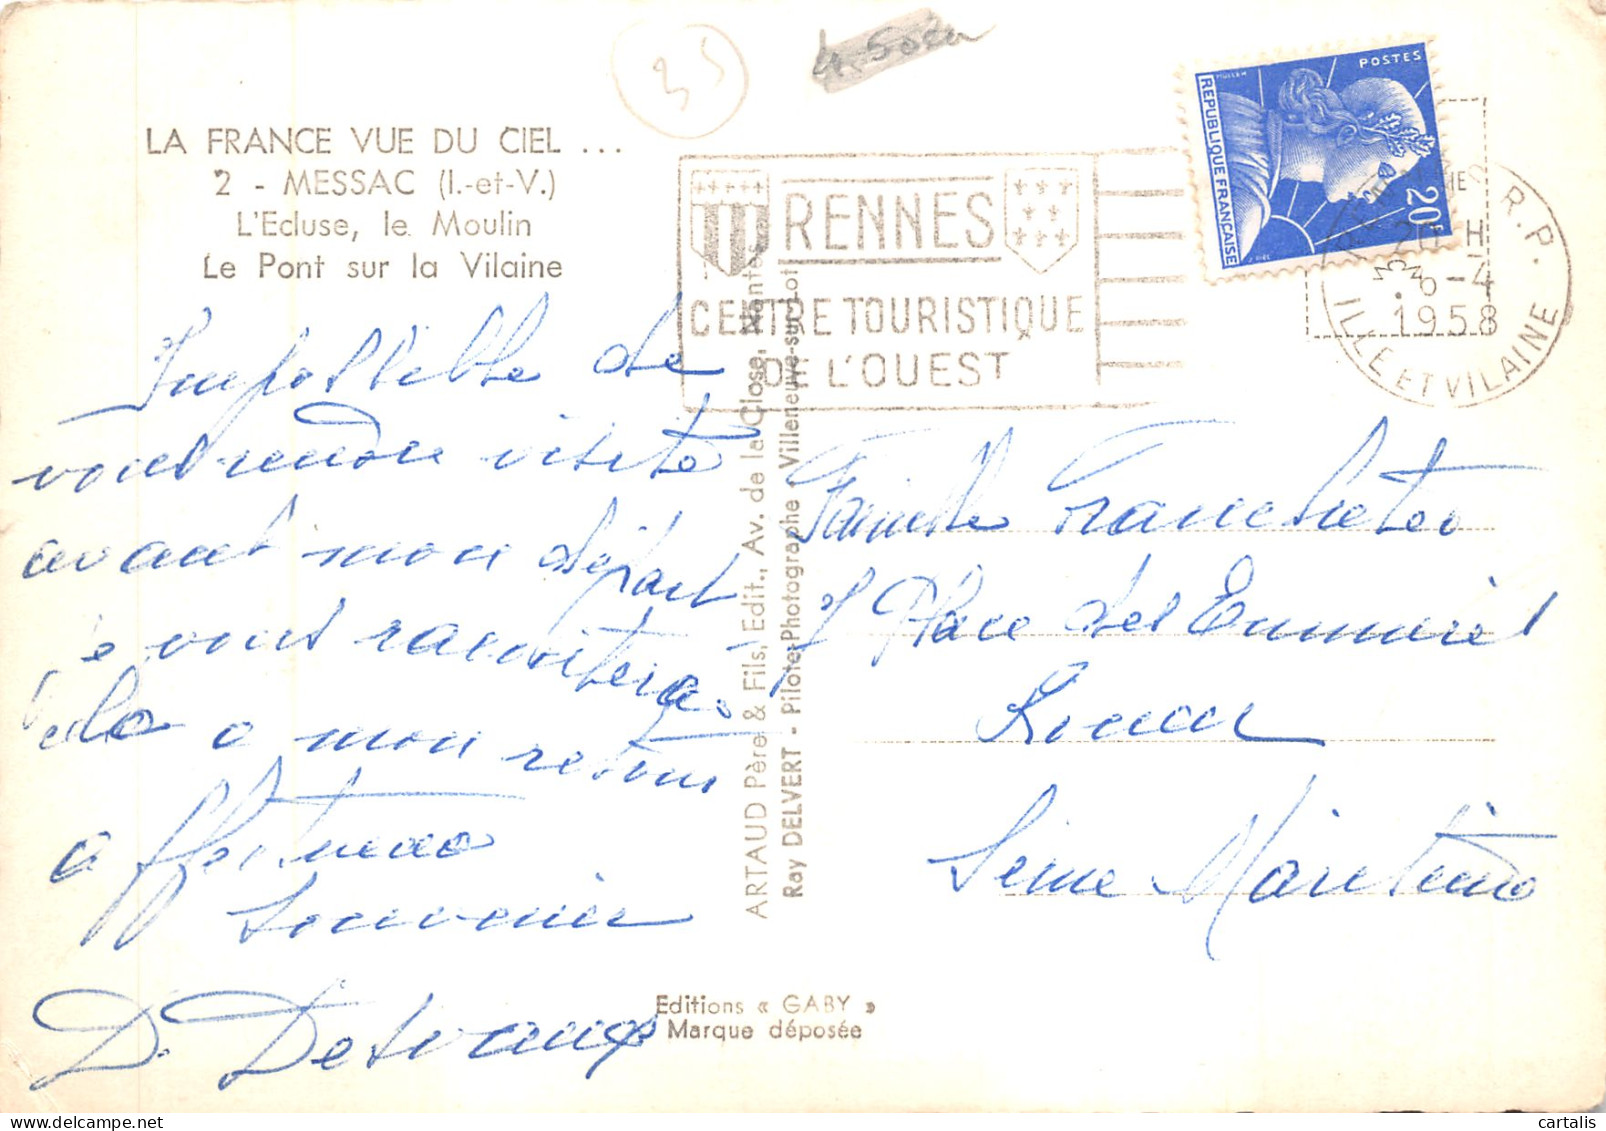 35
LA FRANCE VUE DU CIEL ...
2 - MESSAC (I.-et-V.)
L'Ecluse, le Moulin
Le Pont sur la Vilaine
RENNES
CENTRE TOURISTIQUE
DE L'OUEST
POSTES
MULLER
REPUBLIQUE FRANÇAISE
20F
R.P.
20 H
-4
1958
ILLE ET VILAINE
Impossible de
vous rendre visite
avant mon départ
je vous raconterai
cela a mon retour
affectueux
souvenir
D. Desvaux
ARTAUD Père & Fils, Edit., Av. de la Close, Nantes
Ray DELVERT - Pilote-Photographe - Villeneuve-sur-Lot
Famille
7 Place des Emmurés
Rouen
Seine Maritime
Editions « GABY »
Marque déposée
cartalis